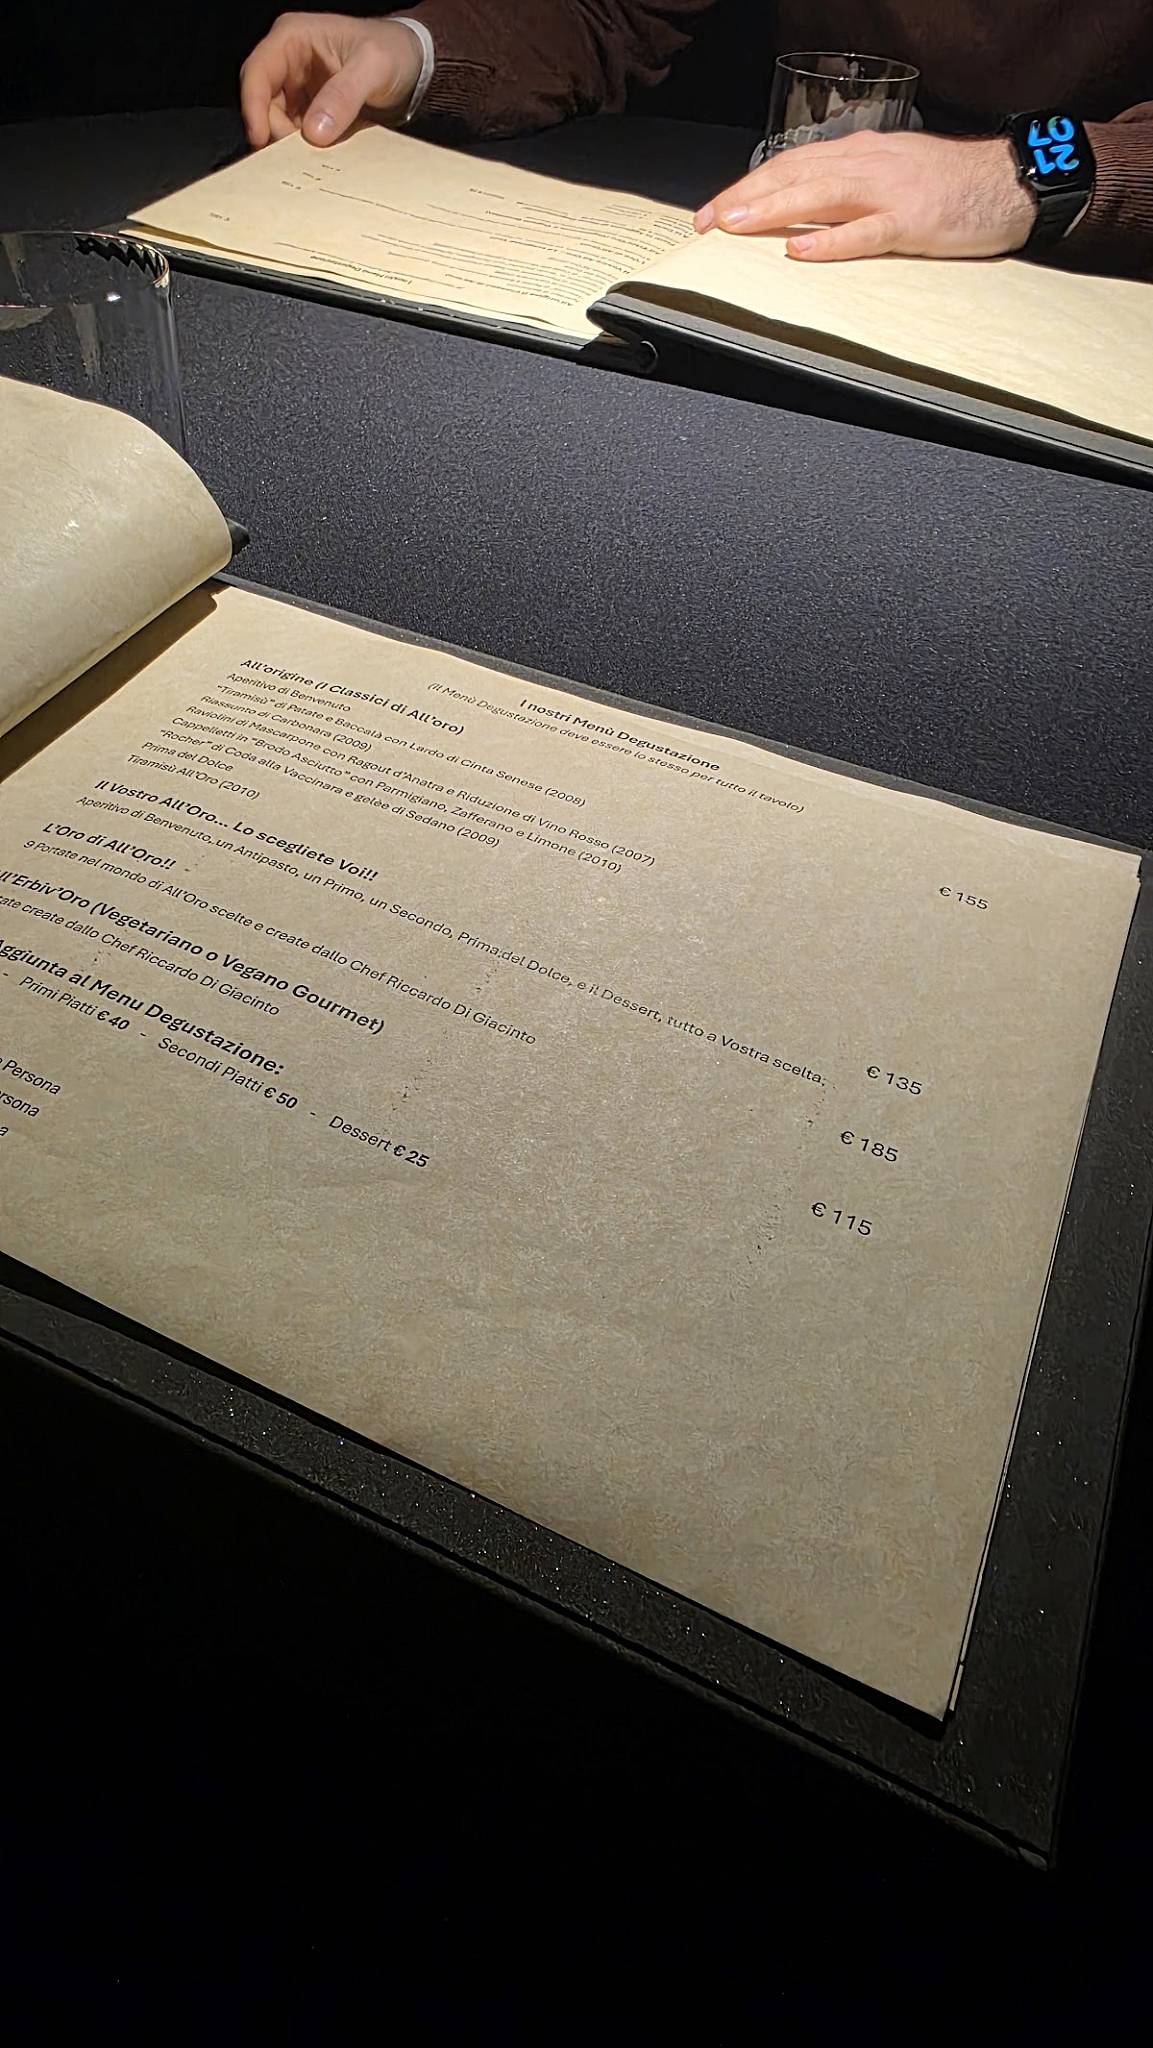 21
07
I nostri Menù Degustazione
(Il Menù Degustazione deve essere lo stesso per tutto il tavolo)
All'origine (I Classici di All'oro)
Aperitivo di Benvenuto
"Tiramisù" di Patate e Baccalà con Lardo di Cinta Senese (2008)
Riassunto di Carbonara (2009)
Raviolini di Mascarpone con Ragout d'Anatra e Riduzione di Vino Rosso (2007)
Cappelletti in "Brodo Asciutto" con Parmigiano, Zafferano e Limone (2010)
"Rocher" di Coda alla Vaccinara e gelèe di Sedano (2009)
Prima del Dolce
Tiramisù All'Oro (2010)
€ 155
Il Vostro All'Oro... Lo scegliete Voi!!
Aperitivo di Benvenuto, un Antipasto, un Primo, un Secondo, Prima del Dolce, e il Dessert, tutto a Vostra scelta.
€ 135
L'Oro di All'Oro!!
9 Portate nel mondo di All'Oro scelte e create dallo Chef Riccardo Di Giacinto
€ 185
(Vegetariano o Vegano Gourmet)
create dallo Chef Riccardo Di Giacinto
€ 115
al Menu Degustazione:
- Primi Piatti € 40 - Secondi Piatti € 50 - Dessert € 25
Persona